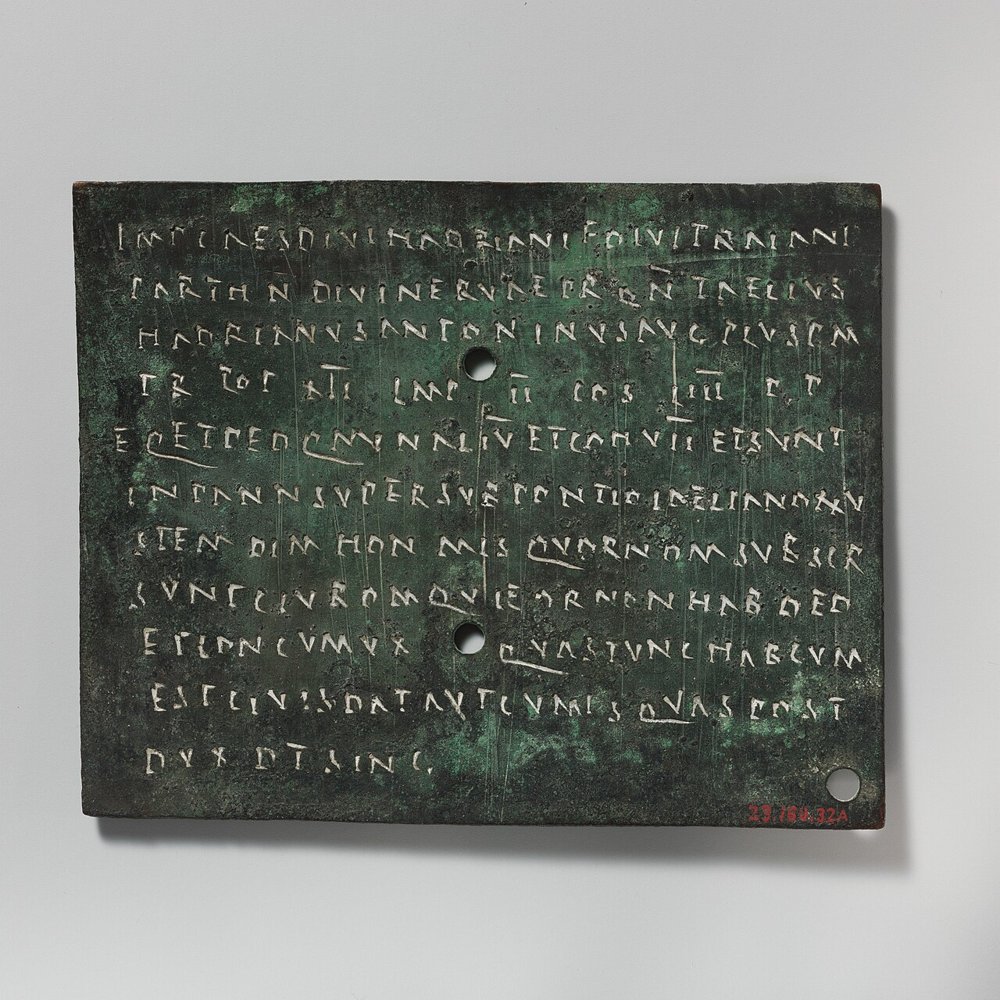 IMP CAES DIVI HADRIANI F DIVI TRAIANI
PARTH N DIVI NERVAE PRON T AELIVS
HADRIANVS ANTONINVS AVG PIVS P M
TR POT XII IMP II COS IIII P P
E Q ET PED Q M IN AL IV ET COH VII ET SVNT
IN PANN SVPER SVB PONTIO LAELIANO XXV
STEM DIM HON MIS QVOR NOM SVB SCR
SVNT CIV ROM QVI EOR NON HAB DED
ET CON CVM VX QVAS TVNC HAB CVM
EST CIVIS DAT AVT CVM IS QVAS POST
DVX DT SING
23.160.32A